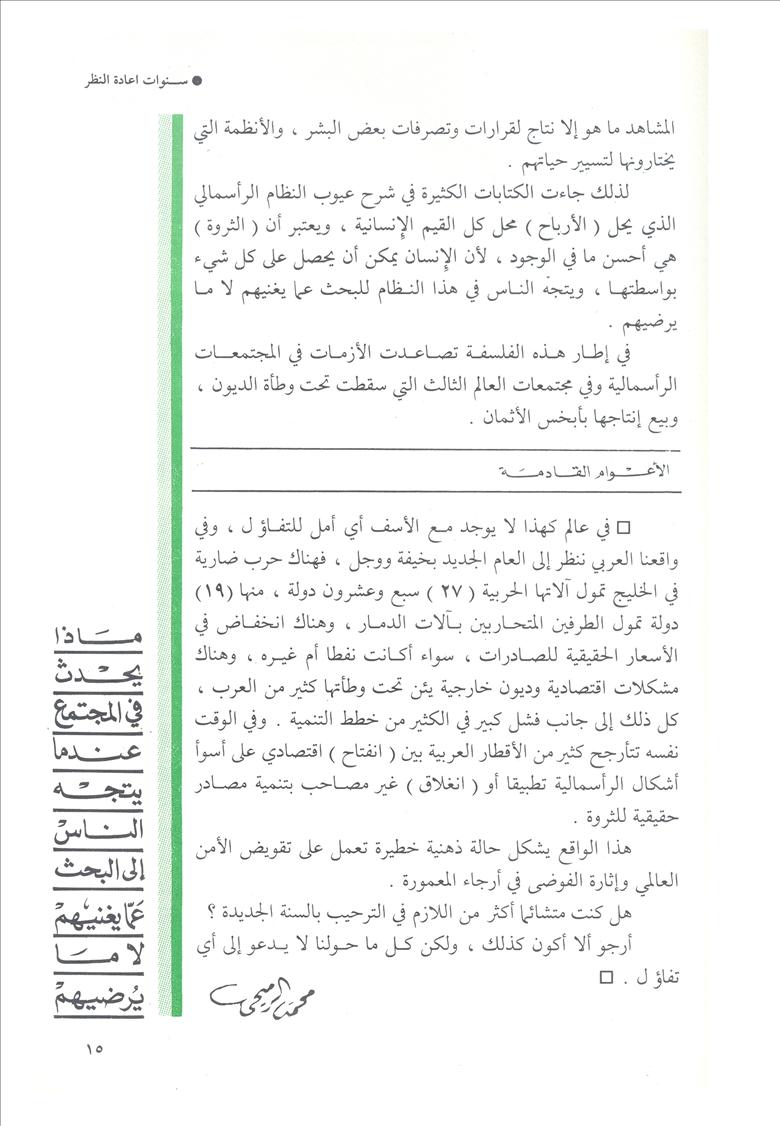 ● سنوات اعادة النظر
المشاهد ما هو إلا نتاج لقرارات وتصرفات بعض البشر ، والأنظمة التي
يختارونها لتسيير حياتهم .
لذلك جاءت الكتابات الكثيرة في شرح عيوب النظام الرأسمالي
الذي يحل ( الأرباح ) محل كل القيم الإنسانية ، ويعتبر أن ( الثروة )
هي أحسن ما في الوجود ، لأن الإنسان يمكن أن يحصل على كل شيء
بواسطتها ، ويتجه الناس في هذا النظام للبحث عما يغنيهم لا ما
يرضيهم .
في إطار هذه الفلسفة تصاعدت الأزمات في المجتمعات
الرأسمالية وفي مجتمعات العالم الثالث التي سقطت تحت وطأة الديون ،
وبيع إنتاجها بأبخس الأثمان .
الأعوام القادمة
□ في عالم كهذا لا يوجد مع الأسف أي أمل للتفاؤل ، وفي
واقعنا العربي ننظر إلى العام الجديد بخيفة ووجل ، فهناك حرب ضارية
في الخليج تمول آلاتها الحربية ( ٢٧ ) سبع وعشرون دولة ، منها (١٩)
دولة تمول الطرفين المتحاربين بآلات الدمار ، وهناك انخفاض في
الأسعار الحقيقية للصادرات ، سواء أكانت نفطا أم غيره ، وهناك
مشكلات اقتصادية وديون خارجية يئن تحت وطأتها كثير من العرب ،
كل ذلك إلى جانب فشل كبير في الكثير من خطط التنمية . وفي الوقت
نفسه تتأرجح كثير من الأقطار العربية بين ( انفتاح ) اقتصادي على أسوأ
أشكال الرأسمالية تطبيقا أو ( انغلاق ) غير مصاحب بتنمية مصادر
حقيقية للثروة .
هذا الواقع يشكل حالة ذهنية خطيرة تعمل على تقويض الأمن
العالمي وإثارة الفوضى في أرجاء المعمورة .
هل كنت متشائما أكثر من اللازم في الترحيب بالسنة الجديدة ؟
أرجو ألا أكون كذلك ، ولكن كل ما حولنا لا يدعو إلى أي
تفاؤل . □
محمد الرميحي
ماذا
يحدث
في المجتمع
عندما
يتجه
الناس
إلى البحث
عَمّا يغنيهم
لا ما
يُرضيهم
١٥